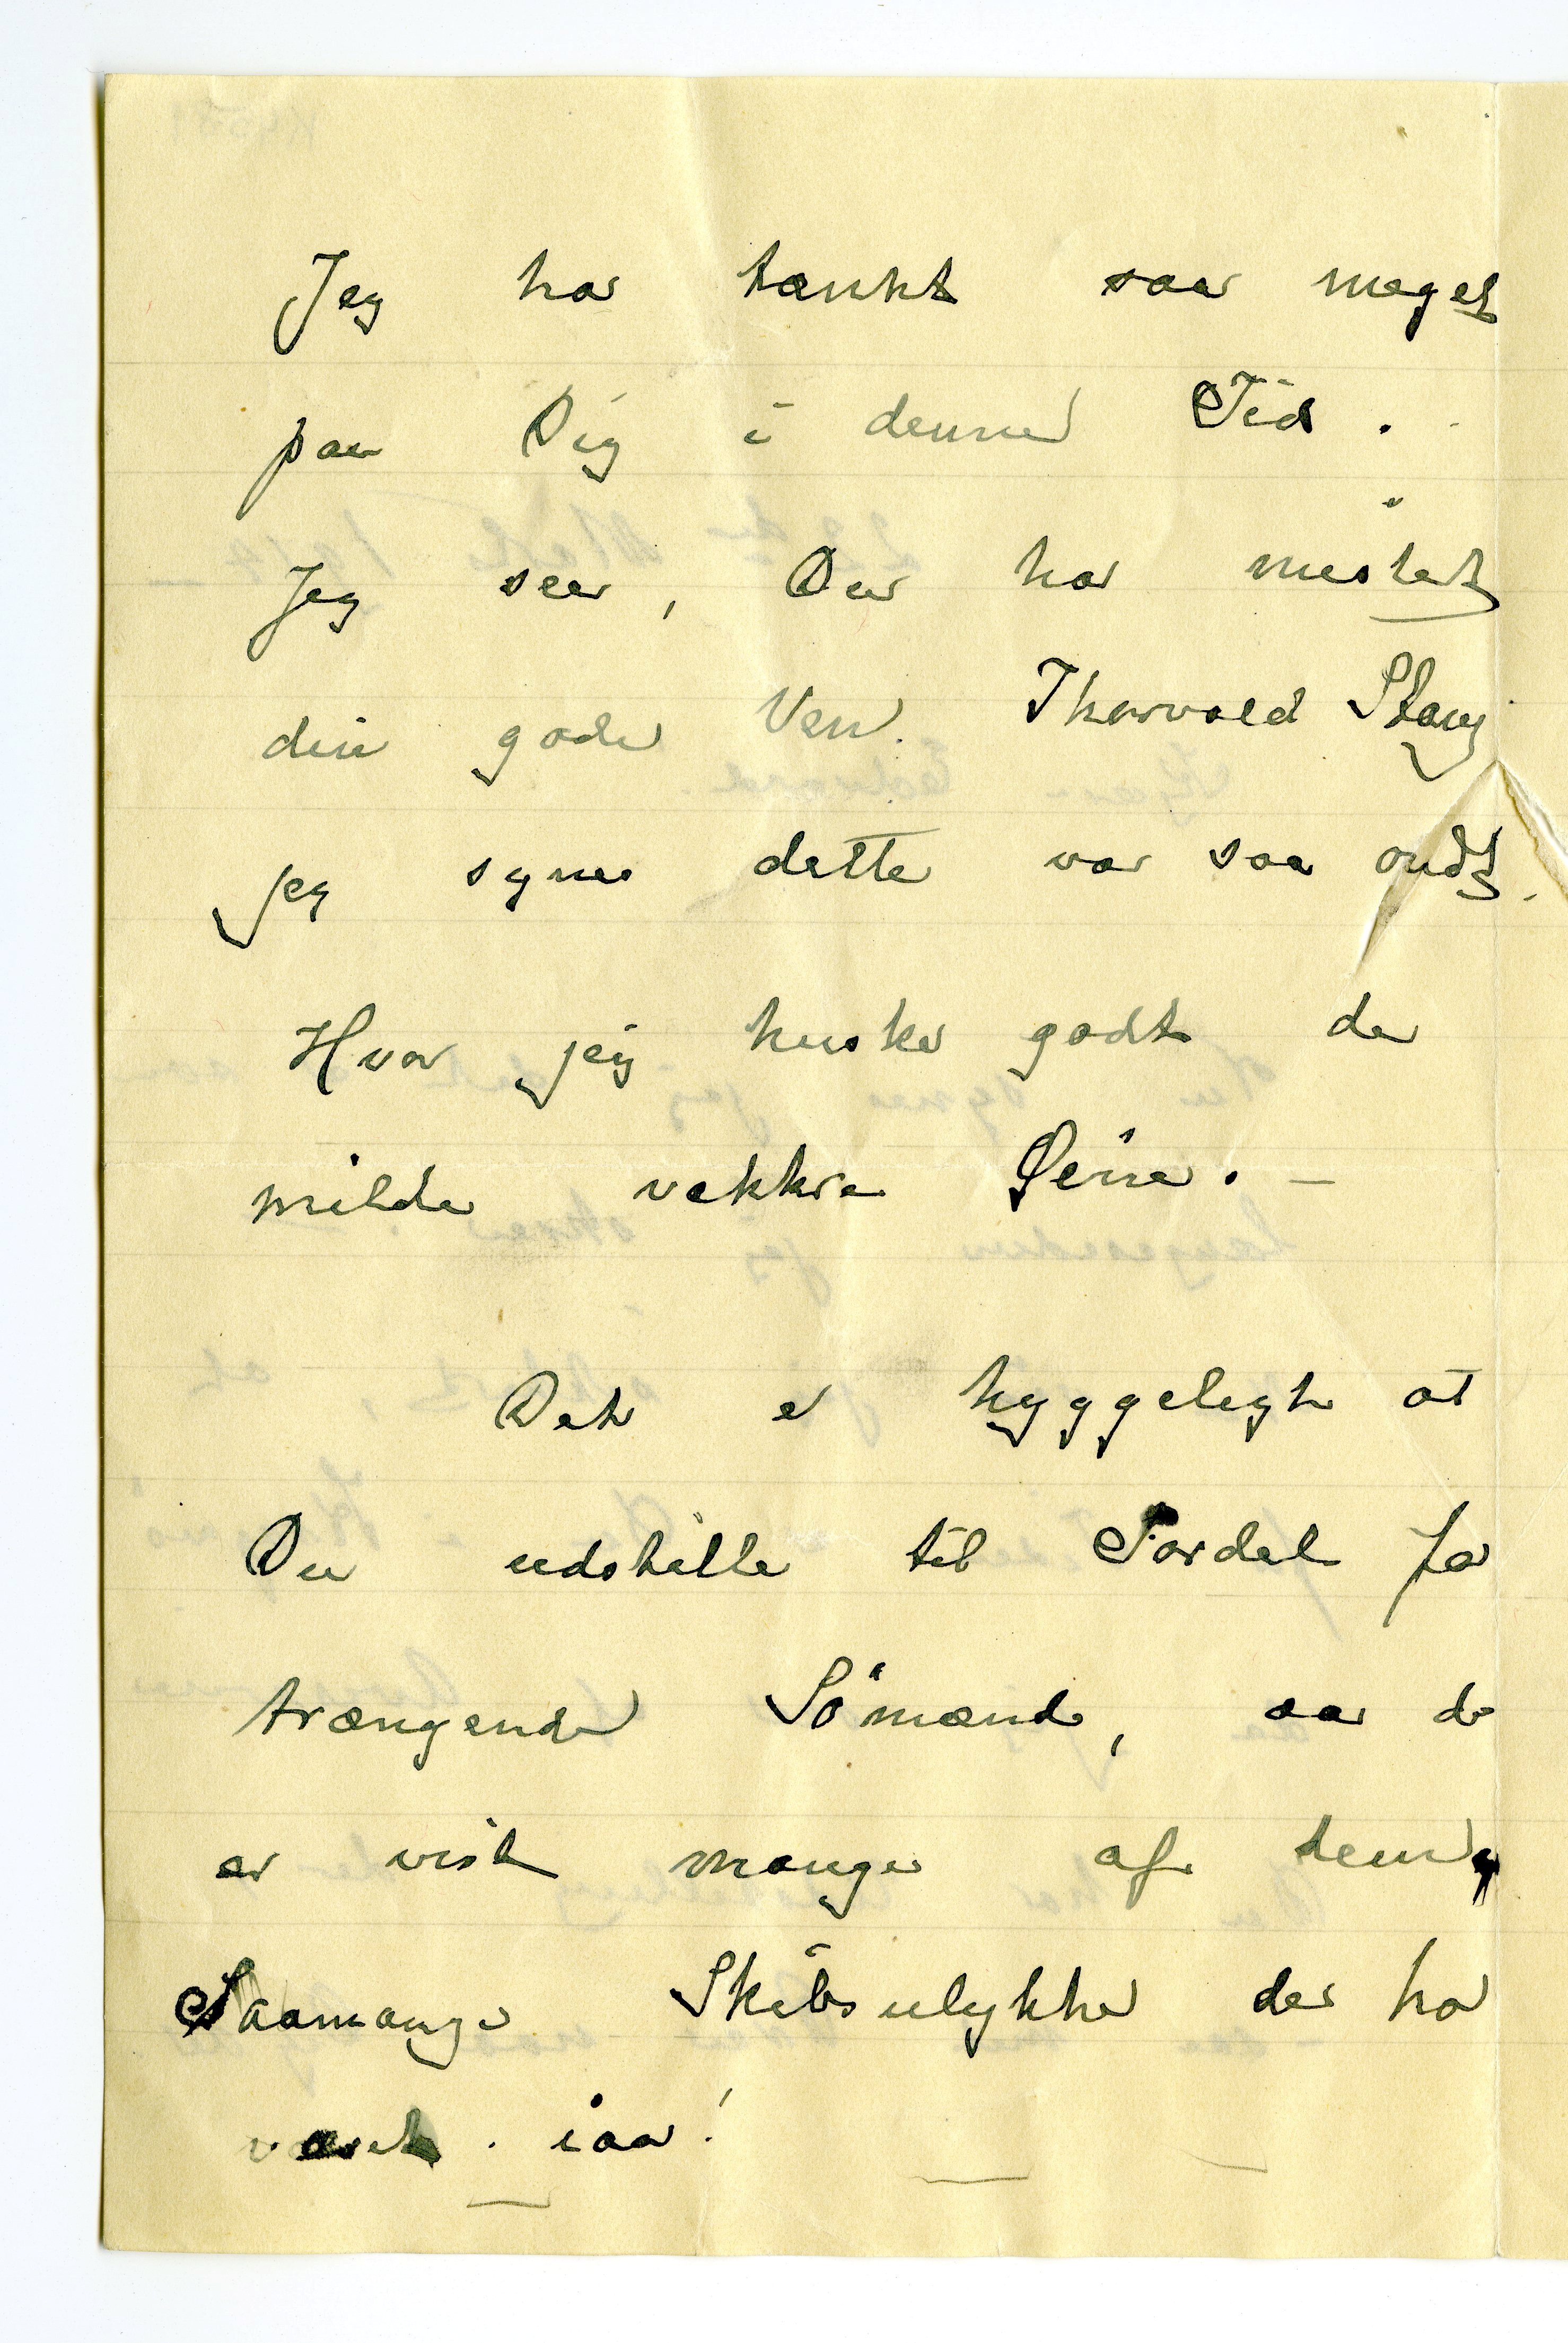 Jeg har tænkt saa meget
paa Dig i denne Tid.
Jeg seer, Du har mistet
din gode Ven Thorvald Stang
jeg synes dette var saa ondt.
Hvor jeg husker godt de
milde vakkre Øine. —
Det er hyggeligt at
Du udstille til Fordel for
trængende Sømænd, aa de
er vist mange af dem,
Saamange Skibsulykker der har
været iaar!